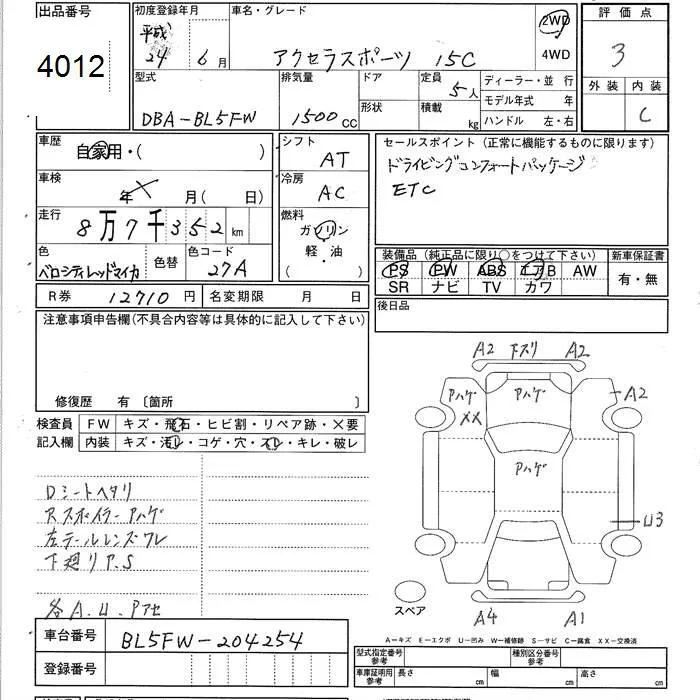 出品番号
4012
初度登録年月
平成
24 6月
車名・グレード
アクセラスポーツ 15C
2WD
4WD
評価点
3
外装 内装
C
型式
DBA-BL5FW
排気量
1500cc
ドア
形状
定員
5人
積載
kg
ディーラー・並 行
モデル年式 年
ハンドル 左・右
車歴
自家用・( )
車検
年 月(日)
走行
8万7千352km
色
ベロシティレッドマイカ
色替
色コード
27A
シフト
AT
冷房
AC
燃料
ガソリン
軽・油
セールスポイント(正常に機能するものに限ります)
ドライビングコンフォートパッケージ
ETC
装備品(純正品に限り○をつけて下さい)
新車保証書
PS PW ABS エアB AW
SR ナビ TV カワ
有・無
R券 12710円
名変期限 月 日
後日品
注意事項申告欄(不具合内容等は具体的に記入して下さい)
修復歴 有〔箇所 〕
検査員
記入欄
FW キズ・飛石・ヒビ割・リペア跡・×要
内装 キズ・汚レ・コゲ・穴・スレ・キレ・破レ
Dシートヘタリ
Rスポイラーアハゲ
左テールレンズワレ
下廻りP.S
各A.U.Pアセ
A2 下スリ A2
アハゲ
XX
アハゲ
A2
アハゲ
U3
スペア
A4 A1
A-キズ E-エクボ U-凹み W-補修跡 S-サビ C-腐食 XX-交換済
車台番号
BL5FW-204254
登録番号
型式指定番号
参考
種別区分番号
参考
車庫証明用
参考
長さ cm
幅 cm
高さ cm